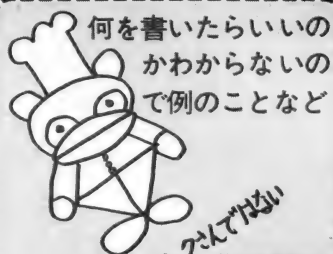 何を書いたらいいの
かわからないの
で例のことなど
クさんではない